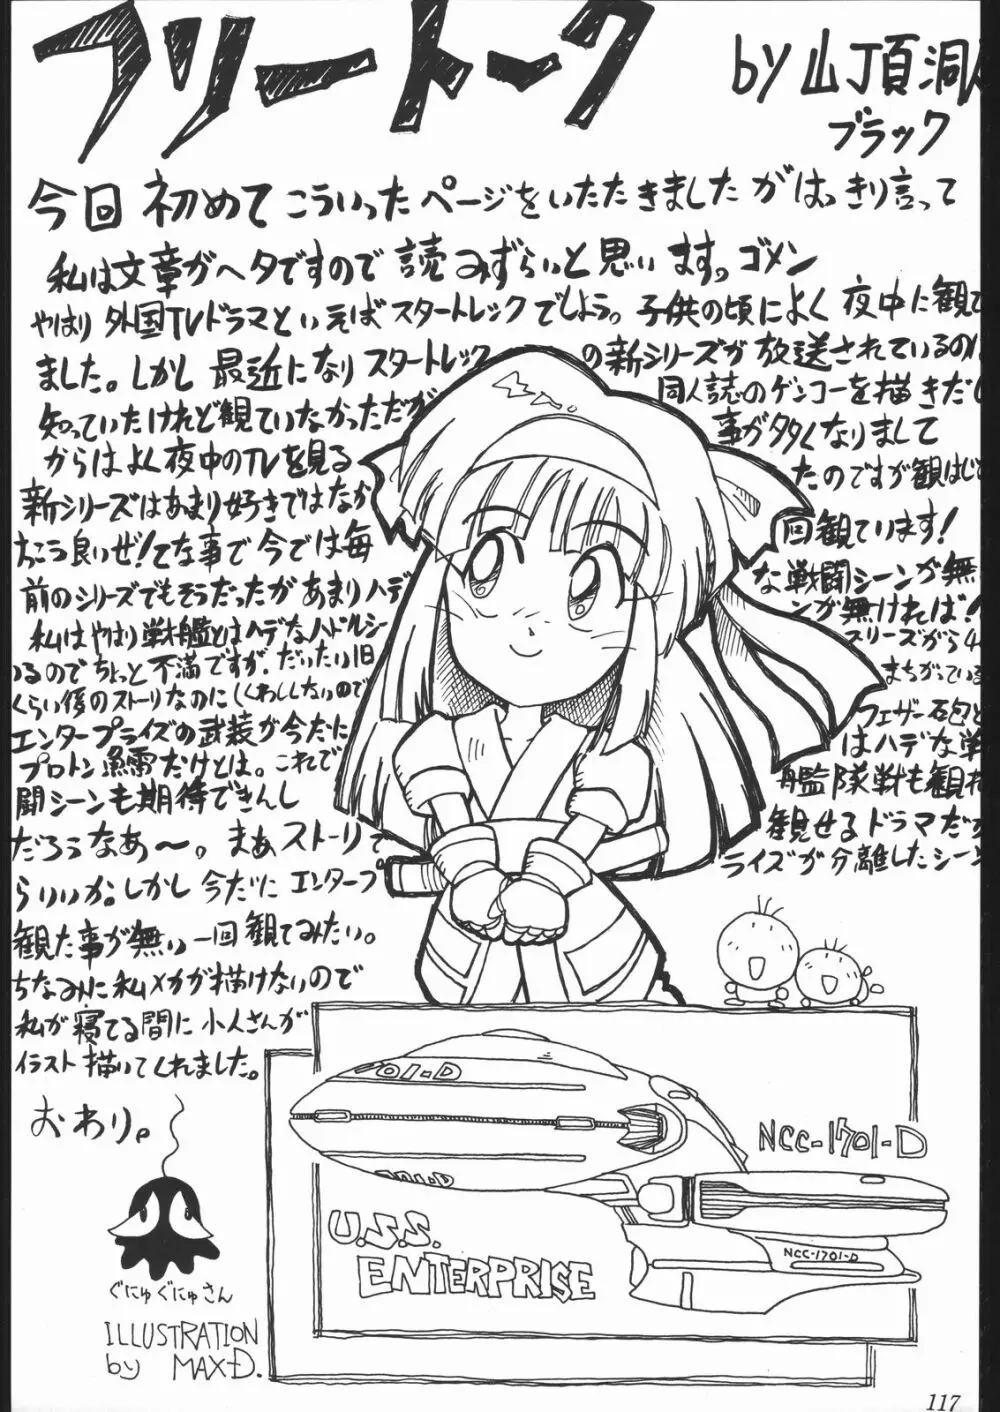 フリートーク
by 山頂洞人
ブラック
今回初めてこういったページをいただきましたがはっきり言って
私は文章がヘタですので読みずらいと思います。ゴメン
やはり外国TVドラマといえばスタートレックでしょう。子供の頃によく夜中に観て
ました。しかし最近になりスタートレックの新シリーズが放送されているのは
知っていたけれど観ていなかっただが同人誌のゲンコーを描きだし
からはよく夜中のTVを見る事が多くなりまして
新シリーズはあまり好きではなかったのですが観はじめ
っこう良いぜ!てな事で今では毎回観ています!
前のシリーズでもそうだったがあまりハデな戦闘シーンが無
私はやはり戦艦とはハデなハドルシーンが無ければ!
いるのでちょっと不満ですが、だいたい旧スリーズから4
くらい後のストーリなのに(しくわししないのでまちがっている
エンタープライズの武装が今だにフェザー砲と
プロトン魚雷だけとは。これではハデな戦
闘シーンも期待できんし艦隊戦も観れ
だろうなあ〜。まぁストーリで観せるドラマだか
らいいか。しかし今だにエンタープライズが分離したシーン
観た事が無い一回観てみたい。
ちなみに私メカが描けないので
私が寝てる間に小人さんが
イラスト描いてくれました。
おわり。
ぐにゅぐにゅさん
ILLUSTRATION
by MAX-D.
01-D
01-D
NCC-1701-D
U.S.S.
ENTERPRISE
NCC-1701-D
117